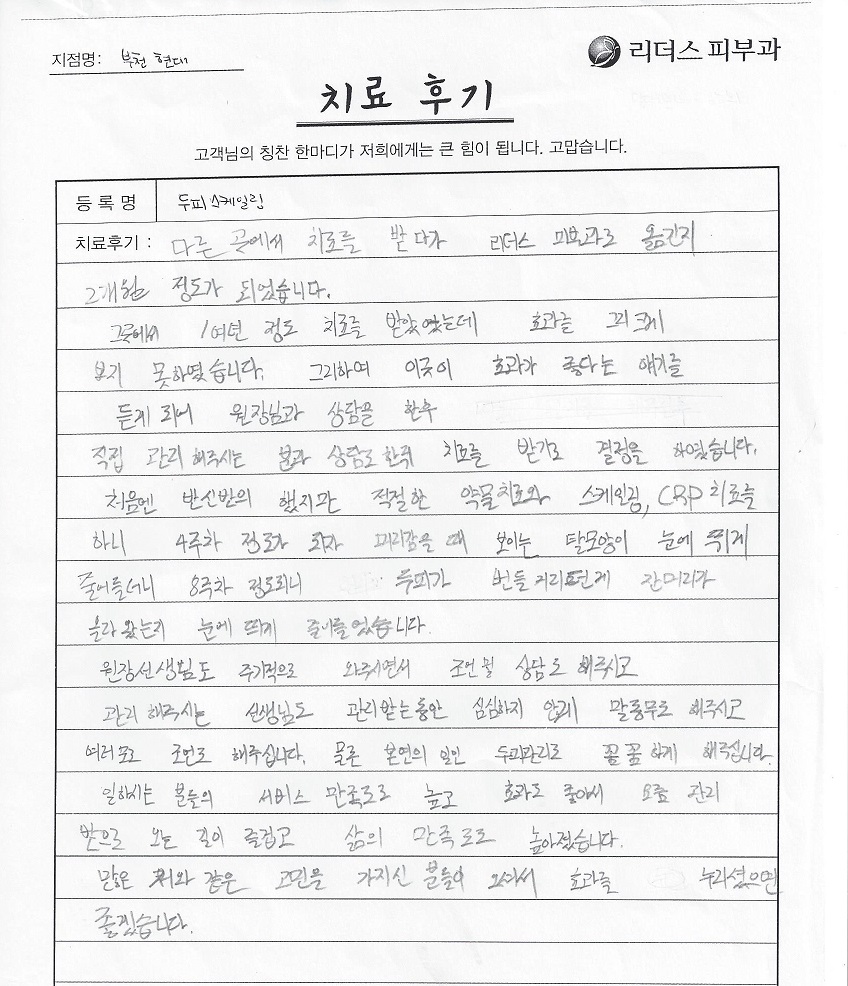 지점명: 부천 현대
리더스 피부과
치료 후기
고객님의 칭찬 한마디가 저희에게는 큰 힘이 됩니다. 고맙습니다.
등 록 명 두피스케일링
치료후기 : 다른 곳에서 치료를 받다가 리더스 피부과로 옮긴지
2개월 정도가 되었습니다.
그곳에서 1여년 정도 치료를 받았었는데 효과를 크게
보지 못하였습니다. 그리하여 이곳이 효과가 좋다는 얘기를
듣게 되어 원장님과 상담을 한후
직접 관리 해주시는 분과 상담도 한뒤 치료를 받기로 결정을 하였습니다.
처음엔 반신반의 했지만 적절한 약물치료와 스케일링, CRP 치료를
하니 4주차 정도가 되자 머리감을 때 보이는 탈모양이 눈에 뛰게
줄어들더니 8주차 정도되니 두피가 번들거리던게 잔머리가
올라 왔는지 눈에 띄게 줄어들었습니다.
원장선생님도 주기적으로 와주시면서 조언 및 상담도 해주시고
관리 해주시는 선생님도 관리받는동안 심심하지 않게 말동무도 해주시고
여러모로 조언도 해주십니다. 물론 본연의 일인 두피관리도 꼼꼼하게 해주십니다.
일하시는 분들의 서비스 만족도도 높고 효과도 좋아서 요즘 관리
받으로 오는 길이 즐겁고 삶의 만족도도 높아졌습니다.
많은 저와 같은 고민을 가지신 분들이 오셔서 효과를 누리셨으면
좋겠습니다.